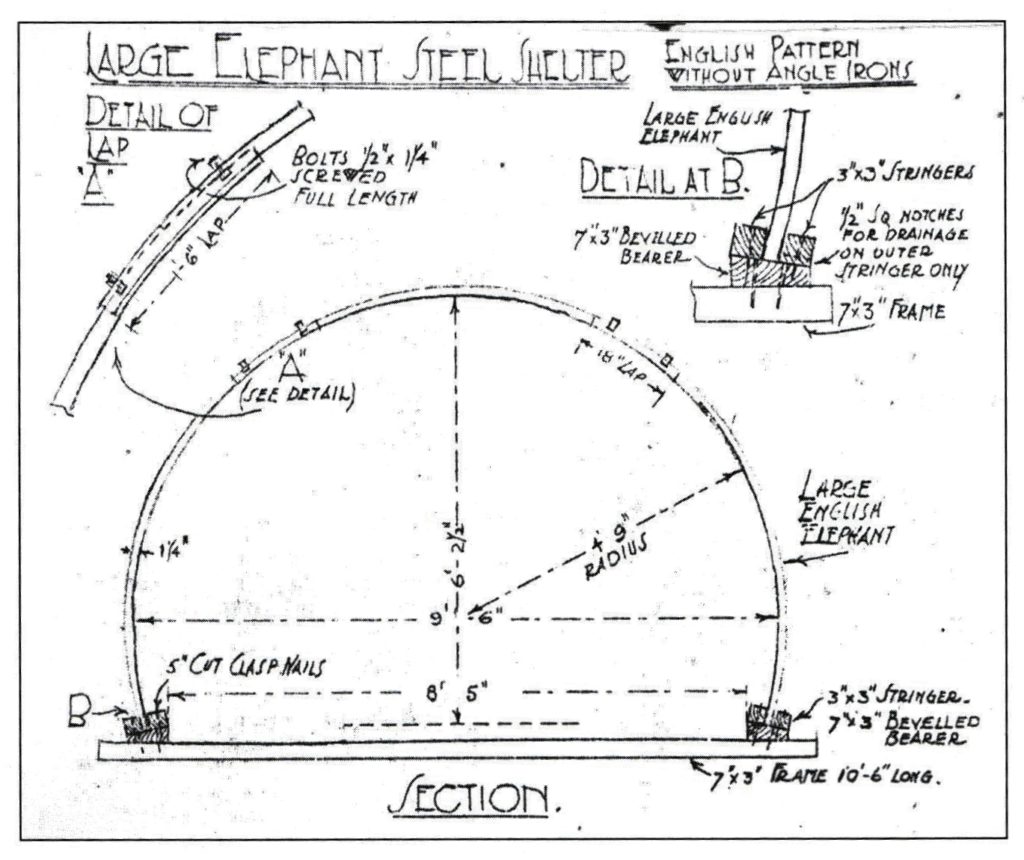 LARGE ELEPHANT STEEL SHELTER
ENGLISH PATTERN
WITHOUT ANGLE IRONS
DETAIL OF
LAP
"A"
BOLTS ½"x 1¼"
SCREWED
FULL LENGTH
6" LAP
LARGE ENGLISH
ELEPHANT
DETAIL AT B.
3"x3" STRINGERS
½" SQ NOTCHES
FOR DRAINAGE
ON OUTER
STRINGER ONLY
7"x3" BEVILLED
BEARER
7"x3" FRAME
"A"
(SEE DETAIL)
18" LAP
LARGE
ENGLISH
ELEPHANT
1¼"
6' 2½"
4' 9"
RADIUS
9' - 6"
5" CUT CLASP NAILS
8' 5"
B
3"x3" STRINGER.
7"x3" BEVELLED
BEARER
7"x3" FRAME 10'-6" LONG.
SECTION.